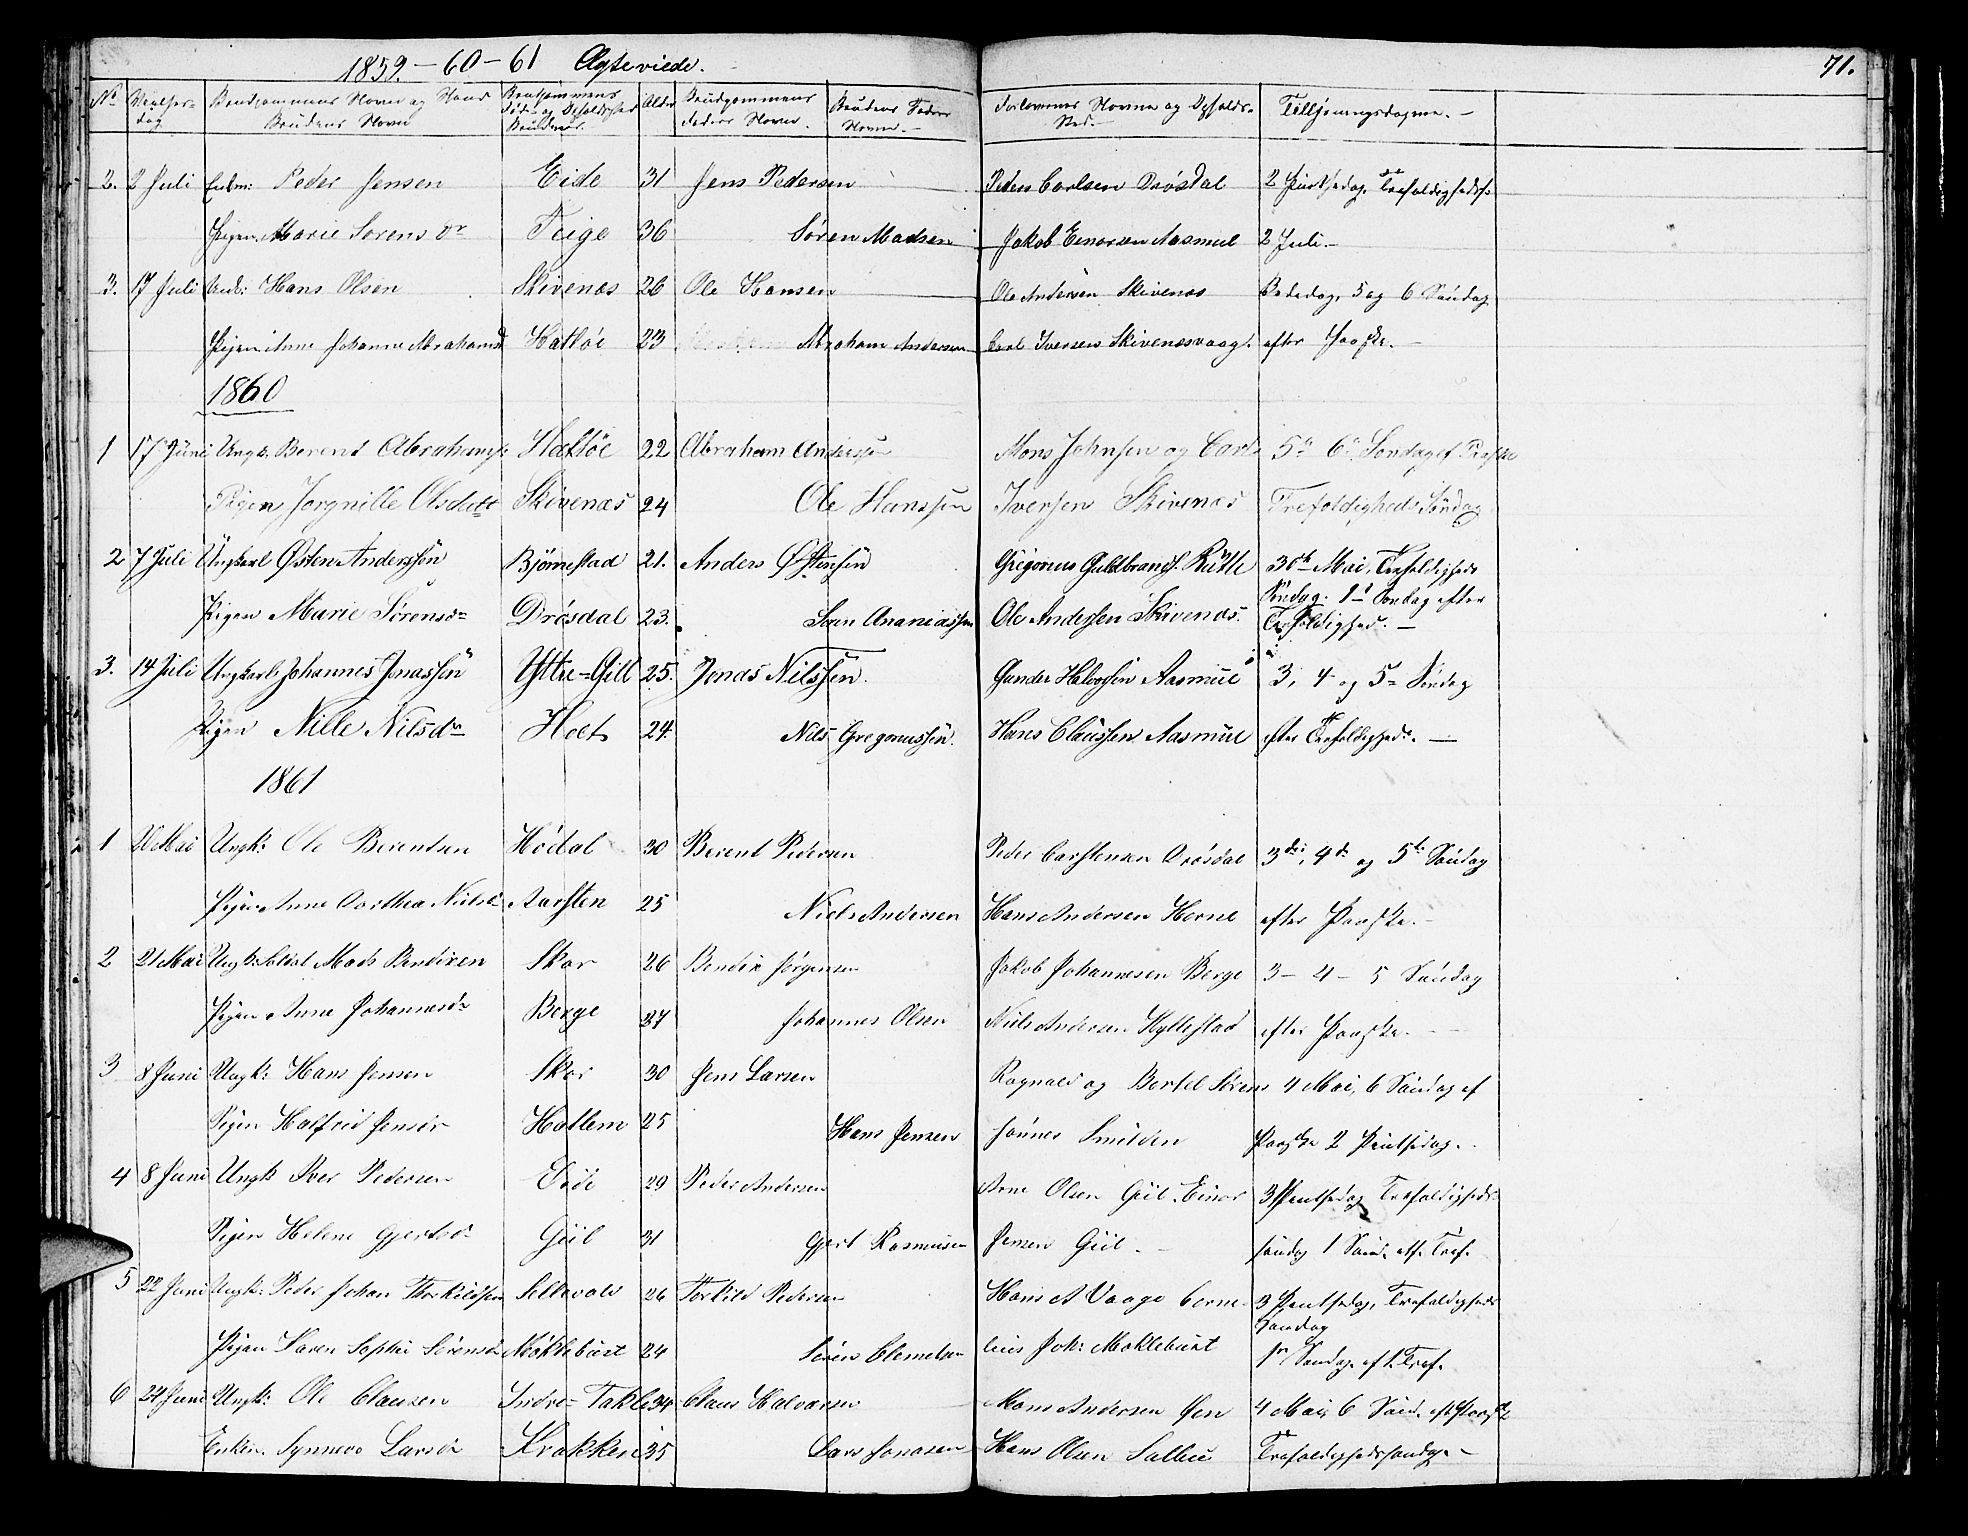 1859. - 60 - 61 Ægteviede.
71.
No Vielses- Brudgommens Navn og Stand Brudgommens Alder Brudgommens Brudens Faders Forlovernes Navne og Opholds- Tillysningsdagene. -
dag Brudens Navn Føde- og Opholdssted Faders Navn. Navn. - Sted. -
Brudens
2. 2 Juli Peder Jensen Eide 31 Jens Pedersen Peder Carlsen Drösdal 2 Pintsedag, Trefoldigheds
Pigen Marie Sorens dr Teige 36 Søren Madsen Jakob Einarsen Aasmul 2 Juli. -
3. 17 Juli Hans Olsen Skivenæs 26 Ole Hansen Ole Andersen Skivenæs Bededag, 5 og 6 Søndag
Pigen Anne Johanne Abrahamsd Hatløe 23 Abraham Andersen Carl Iversen Skivenæsvaag. efter Paaske. -
1860
1 17 Juni Ungk. Berent Abrahams. Hatløe 22 Abraham Andersen Mons Johnsen og Carl 5te 6te Søndag ef Paaske
Pigen Jorgnille Olsdatr Skivenæs 24 Ole Hanssen Iversen Skivenæs Trefoldigheds Søndag
2 7 Juli Ungkarl Østen Anderssøn Bjørnestad 21. Anders Østensøn Gregorius Guldbrands. Rutle 30te Mai, Trefoldigheds
Søndag. 1st Søndag efter
Pigen Marie Sørensdr Drösdal 23. Søren Ananiassen Ole Andersen Skivenæs. Trefoldighed. -
3. 14 Juli Ungkarl Johannes Jonassøn Yttre-Giil 25. Jonas Nilssen. Gunder Halvorsen Aasmul 3, 4 og 5te Søndag
Pigen Nille Nilsdr Holt 24. Nils Gregoriussøn. Hans Claussen Aasmul efter Trefoldighed. -
1861
1 20 Mai Ungk: Ole Berentsen Hödal 30 Berent Pedersen Peder Carstensen Drösdal 3die, 4de og 5te Søndag
Pigen Anne Dorthea Nielsdr Aarsten 25 Niels Andersen Hans Andersen Horne efter Paaske. -
2 21 Mai Ungk: Soldat Mads Bendixen Skor 26 Bendix Jørgensen Jakob Johannesen Berge 3 - 4 - 5 Søndag
Pigen Anne Johannesdr Berge 27 Johannes Olsen Niels Andersen Hyllestad efter Paaske. -
3 8 Juni Ungk: Hans Jensen Skor 30 Jens Larsen Ragnald og Bertel Sørens 4 Mai, 6 Søndag ef
Pigen Halfrid Jensdr Hatlem 25 Hans Jensen sønner Smilden Paaske 2 Pintsedag. -
4 8 Juni Ungk Iver Pedersen Eide 29 Peder Andersen Arne Olsen Giil. Einar 3 Pintsedag Trefoldigheds
Pigen Helene Gjertsdr Giil 31 Gjert Rasmusen Jensen Giil. - søndag 1 Sønd. eft. Tref.
5 22 Juni Ungk: Peder Johan Thorkildsen Sellevold 26 Torkild Pedersen Hans A Vaage Corne- 3 Pintsedag, Trefoldigheds
Søndag
Pigen Karen Sophie Sørensdr Møklebust 24 Søren Clemetsen lius Joh: Møklebust 1ste Søndag eft. Tref.
6 24 Juni Ungk: Ole Clausen Indre-Takle 34 Claus Halvorsen Mons Andersen Øen 4 Mai, 6 Sønd. eft Paaske
Enken Synneva Larsdr Krakken 35 Lars Jonasen Hans Olsen Salbu Trefoldighedssøndag -